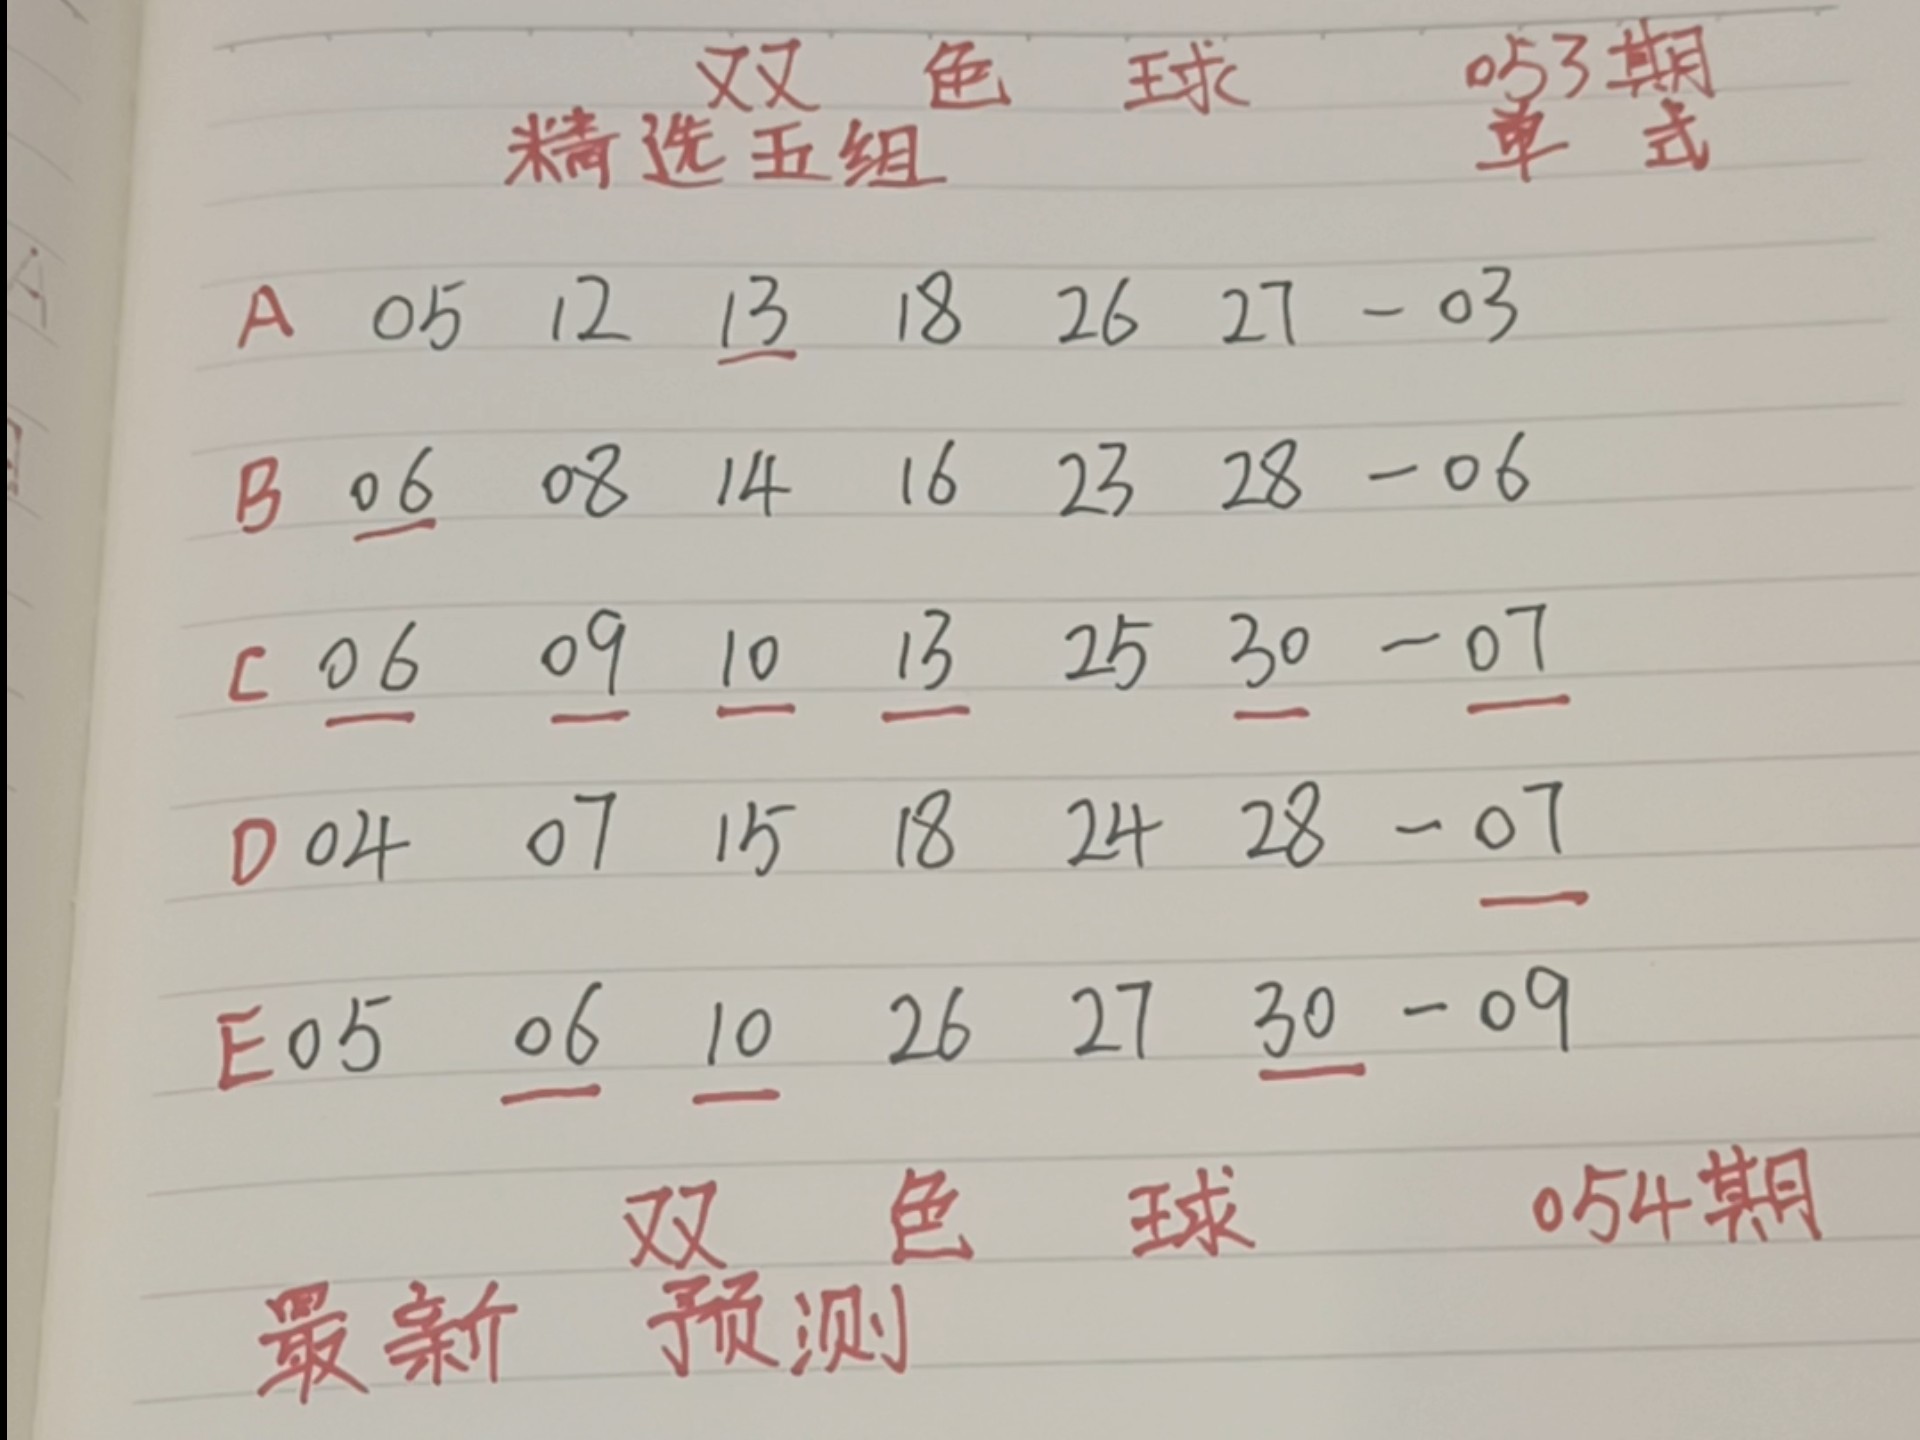 双色球 053期
精选五组 单式
A 05 12 13 18 26 27 - 03
B 06 08 14 16 23 28 - 06
C 06 09 10 13 25 30 - 07
D 04 07 15 18 24 28 - 07
E 05 06 10 26 27 30 - 09
双色球 054期
最新 预测